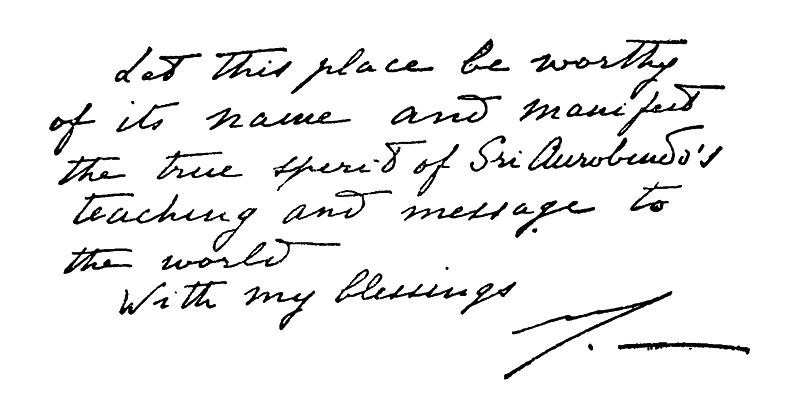 Let this place be worthy
of its name and manifest
the true spirit of Sri Aurobindo's
teaching and message to
the world
With my blessings